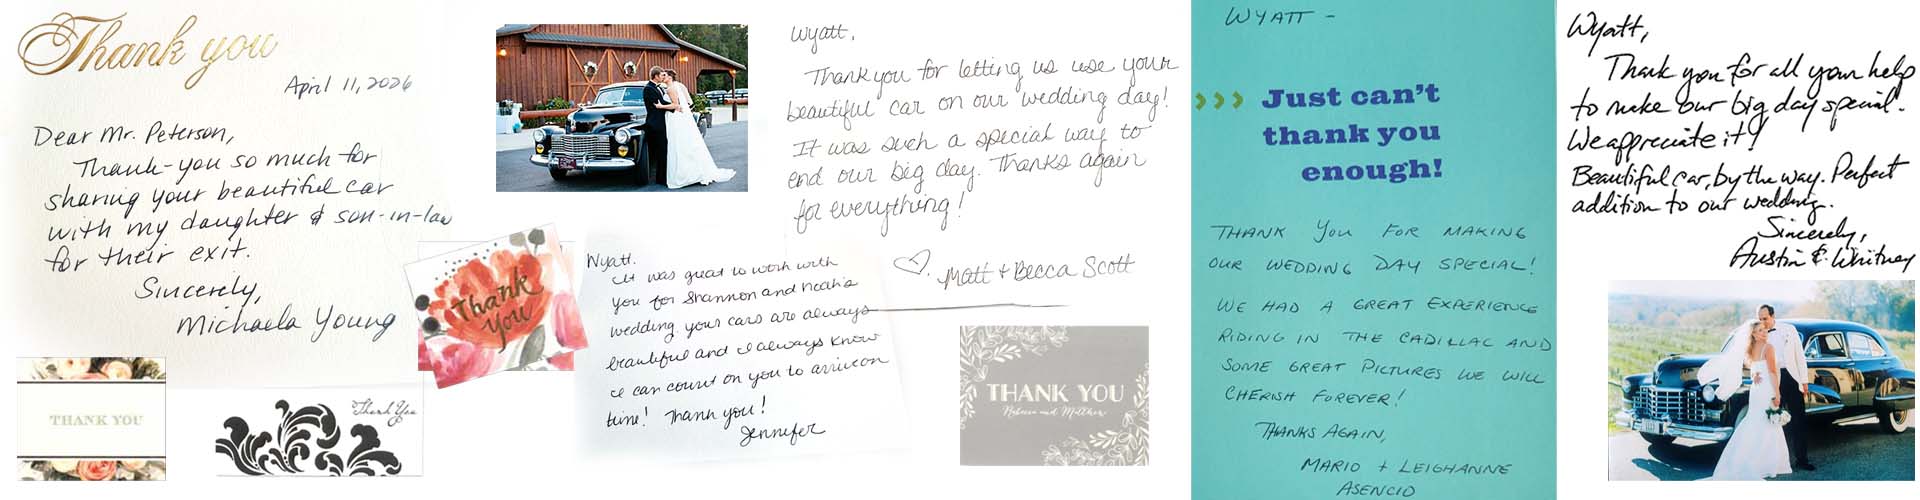 Thank you
April 11, 2026
Dear Mr. Peterson,
Thank-you so much for
sharing your beautiful car
with my daughter & son-in-law
for their exit.
Sincerely,
Michaela Young
THANK YOU
Thank You
Thank
you
Wyatt.
It was great to work with
you for Shannon and Noah's
wedding. your cars are always
beautiful and I always know
I can count on you to arrive on
time! Thank you!
Jennifer
Wyatt,
Thank you for letting us use your
beautiful car on our wedding day!
It was such a special way to
end our big day. Thanks again
for everything!
Matt + Becca Scott
THANK YOU
Rebecca and Matthew
WYATT -
>>> Just can't
thank you
enough!
THANK YOU FOR MAKING
OUR WEDDING DAY SPECIAL!
WE HAD A GREAT EXPERIENCE
RIDING IN THE CADILLAC AND
SOME GREAT PICTURES WE WILL
CHERISH FOREVER!
THANKS AGAIN,
MARIO + LEIGHANNE
ASENCIO
Wyatt,
Thank you for all your help
to make our big day special.
We appreciate it!
Beautiful car, by the way. Perfect
addition to our wedding.
Sincerely,
Austin & Whitney